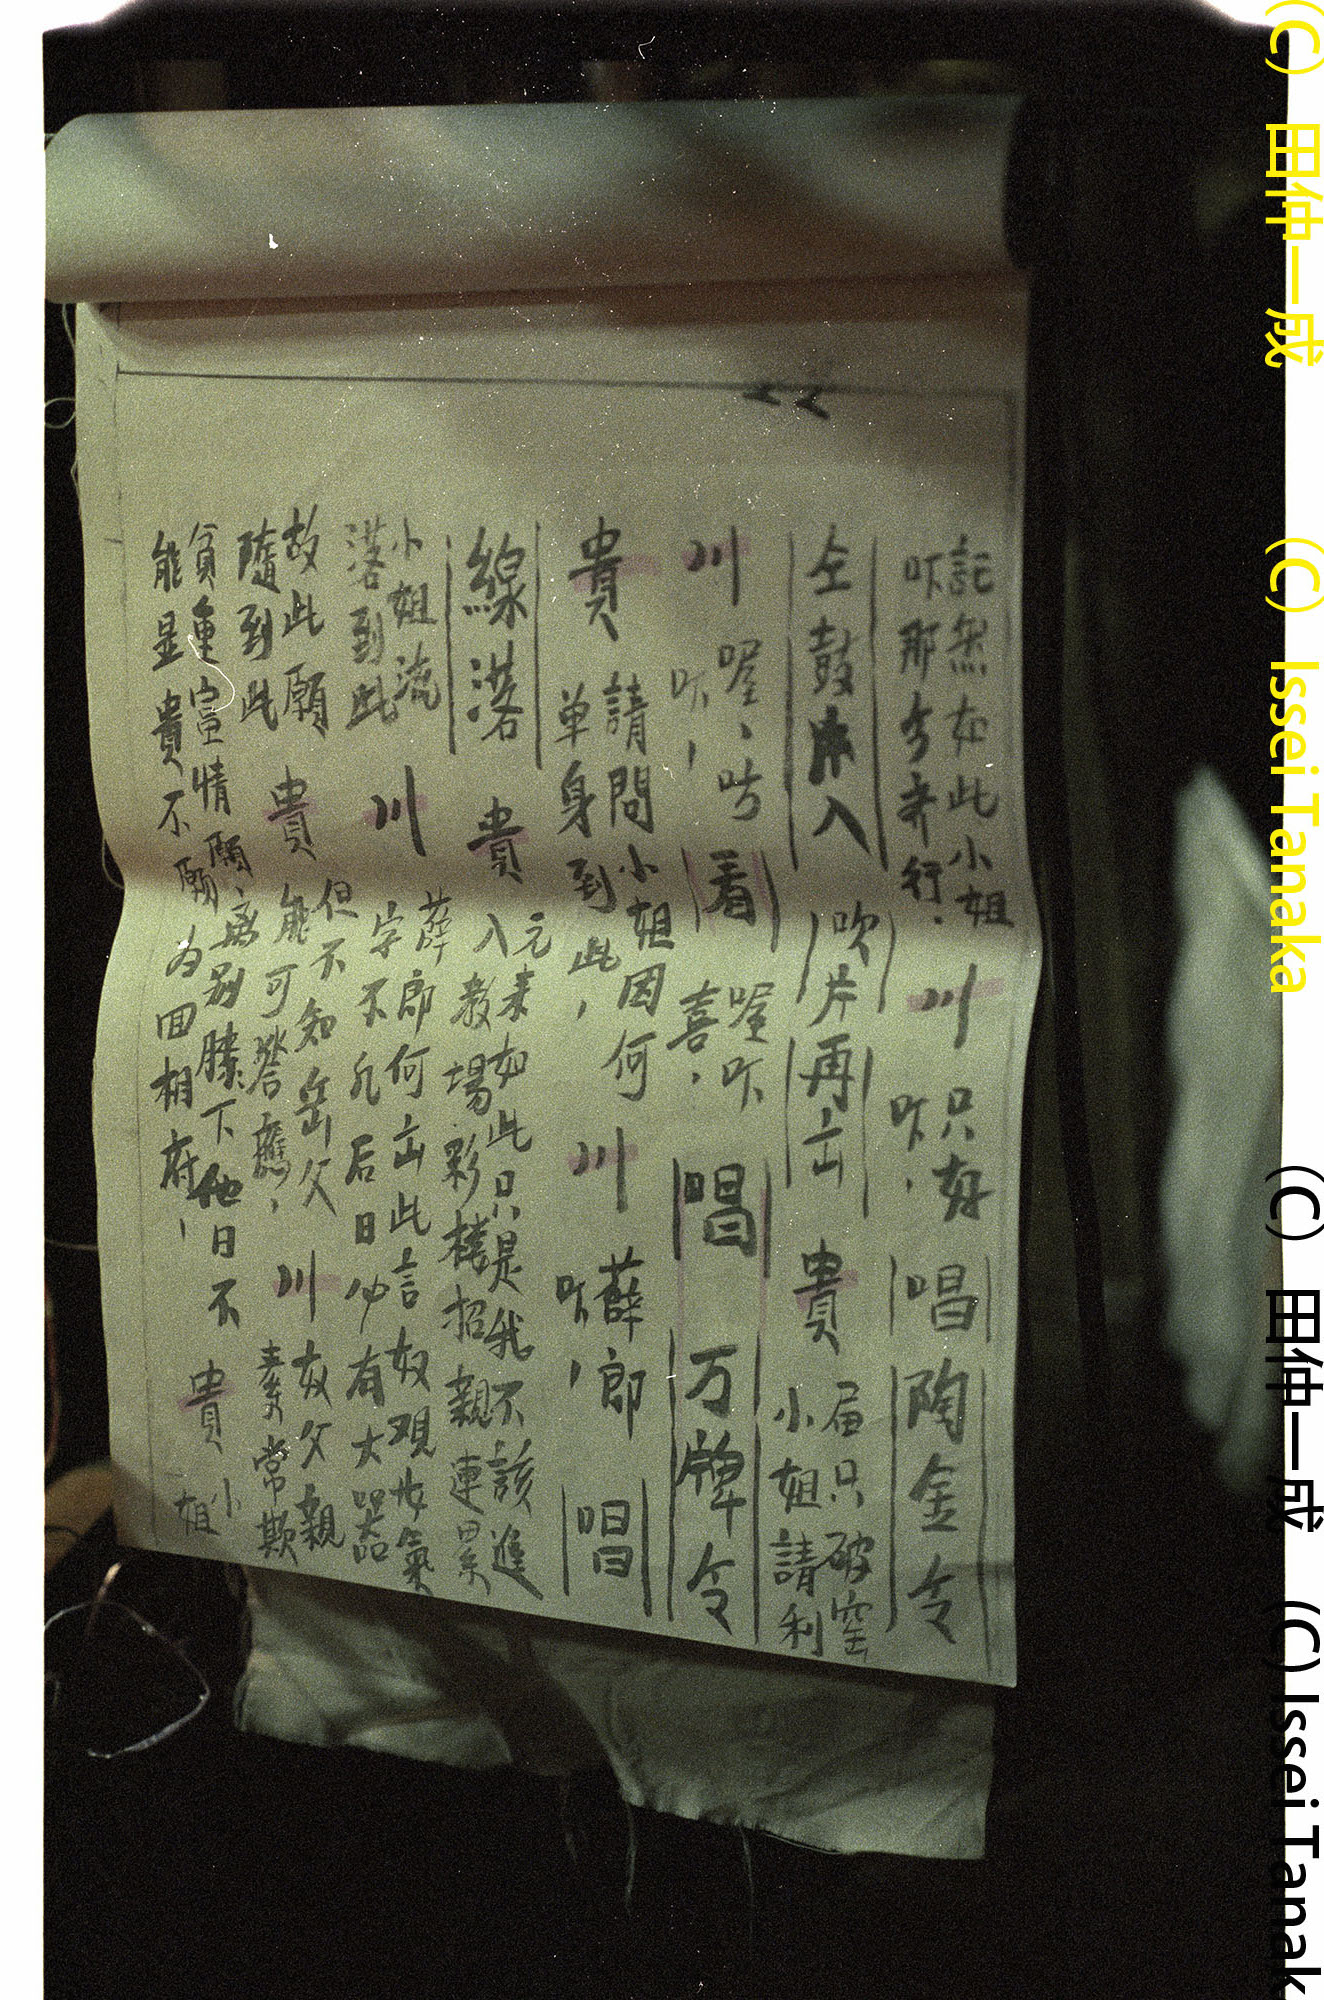 記然如此小姐
吓那方并行.
川
只好
吓,
唱
陶金令
仝鼓 入
吹片
再㐀
貴
届只破窑
小姐請利
川
喔、吓
吓,
看
喔吓
喜.
唱
万牌令
貴
請問小姐因何
单身到此,
川
薛郎
吓,
唱
線落
貴
元来如此只是我不該進
入教場彩楼招親連累
小姐流
落到此
川
薛郎何出此言奴观女氣
字不凡后日必有大器
故此願
隨到此
貴
但不知岳父
能可答應,
川
奴父親
素常欺
貧重富情願离别膝下他日不
能显貴不願为回相府,
貴
小
姐
(C) 田仲一成 (C) Issei Tanaka
(C) 田仲一成 (C) Issei Tanak